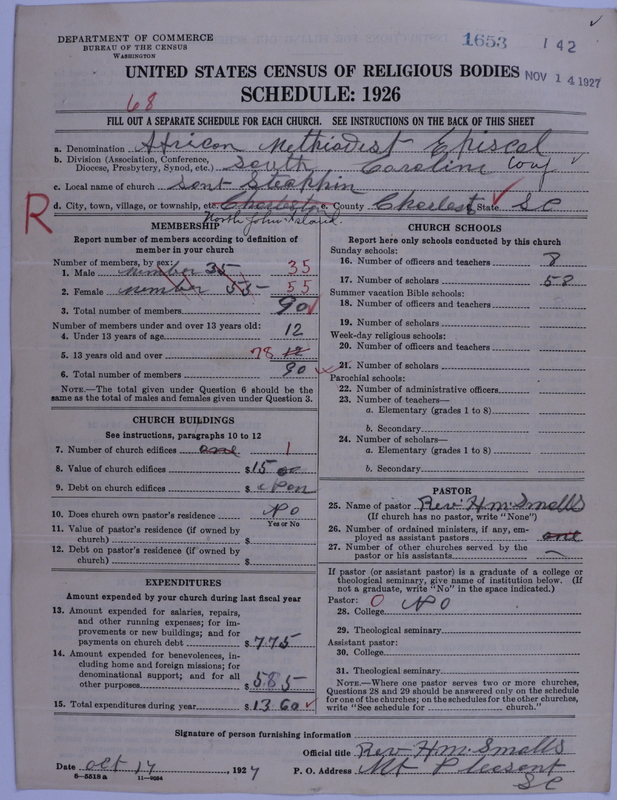 DEPARTMENT OF COMMERCE
BUREAU OF THE CENSUS
WASHINGTON
1653
142
UNITED STATES CENSUS OF RELIGIOUS BODIES
NOV 14 1927
SCHEDULE: 1926
68
FILL OUT A SEPARATE SCHEDULE FOR EACH CHURCH. SEE INSTRUCTIONS ON THE BACK OF THIS SHEET
a. Denomination African Methodiest Episcal
b. Division (Association, Conference, Diocese, Presbytery, Synod, etc.) South Carolini Conf
c. Local name of church Sant Steaphin
R
d. City, town, village, or township, etc. Charleston e. County Charlest State SC
North John Island
MEMBERSHIP
Report number of members according to definition of
member in your church
Number of members, by sex:
1. Male number 35 35
2. Female number 55 55
3. Total number of members 90
Number of members under and over 13 years old:
4. Under 13 years of age 12
5. 13 years old and over 78 12
6. Total number of members 90
NOTE.—The total given under Question 6 should be the
same as the total of males and females given under Question 3.
CHURCH BUILDINGS
See instructions, paragraphs 10 to 12
7. Number of church edifices one 1
8. Value of church edifices $1500
9. Debt on church edifices $ Non
10. Does church own pastor's residence? No
Yes or No
11. Value of pastor's residence (if owned by
church) $
12. Debt on pastor's residence (if owned by
church) $
EXPENDITURES
Amount expended by your church during last fiscal year
13. Amount expended for salaries, repairs,
and other running expenses; for im-
provements or new buildings; and for
payments on church debt $775
14. Amount expended for benevolences, in-
cluding home and foreign missions; for
denominational support; and for all
other purposes $585
15. Total expenditures during year $1360
CHURCH SCHOOLS
Report here only schools conducted by this church
Sunday schools:
16. Number of officers and teachers 8
17. Number of scholars 58
Summer vacation Bible schools:
18. Number of officers and teachers
19. Number of scholars
Week-day religious schools:
20. Number of officers and teachers
21. Number of scholars
Parochial schools:
22. Number of administrative officers
23. Number of teachers—
a. Elementary (grades 1 to 8)
b. Secondary
24. Number of scholars—
a. Elementary (grades 1 to 8)
b. Secondary
PASTOR
25. Name of pastor Rev. H M. Smalls
(If church has no pastor, write "None")
26. Number of ordained ministers, if any, em-
ployed as assistant pastors one
27. Number of other churches served by the
pastor or his assistants
If pastor (or assistant pastor) is a graduate of a college or
theological seminary, give name of institution below. (If
not a graduate, write "No" in the space indicated.)
Pastor: 0 No
28. College
29. Theological seminary
Assistant pastor:
30. College
31. Theological seminary
NOTE.—Where one pastor serves two or more churches,
Questions 28 and 29 should be answered only on the schedule
for one of the churches; on the schedules for the other churches,
write "See schedule for church."
Signature of person furnishing information
Official title Rev. H M. Smalls
Date Oct 17, 1927 P. O. Address Mt Pleesent
SC
8—5518a 11—9054